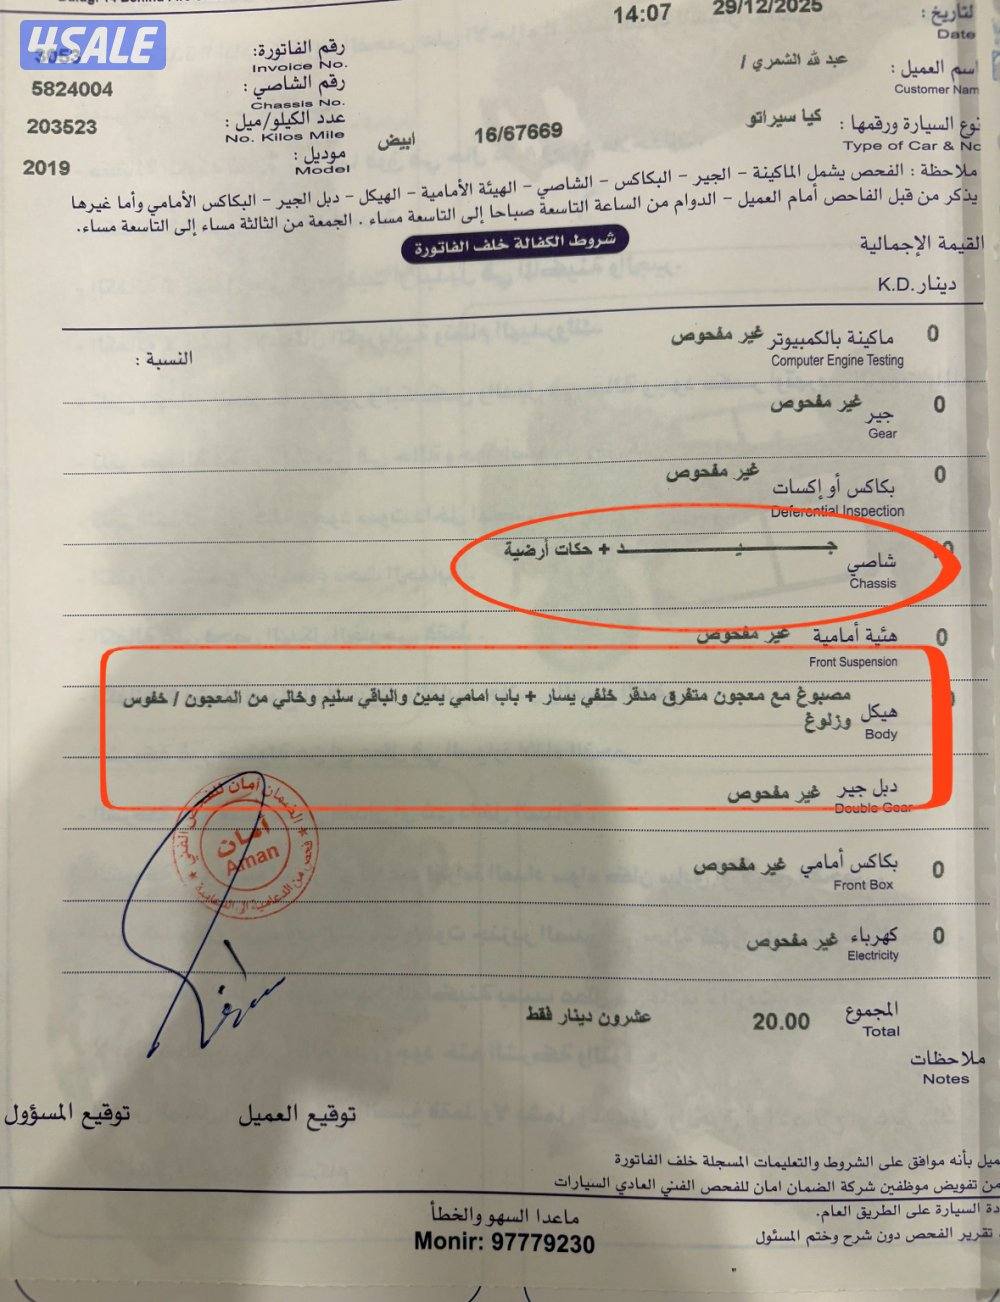 4SALE
لتاريخ :
29/12/2025
14:07
Date
رقم الفاتورة:
3053
Invoice No.
اسم العميل :
عبد لله الشمري /
Customer Nam
رقم الشاصي :
5824004
Chassis No.
نوع السيارة ورقمها :
كيا سيراتو
16/67669
ابيض
Type of Car & No
عدد الكيلو/ميل :
203523
No. Kilos Mile
موديل :
2019
Model
ملاحظة : الفحص يشمل الماكينة - الجير - البكاكس - الشاصي - الهيئة الأمامية - الهيكل - دبل الجير - البكاكس الأمامي وأما غيرها
يذكر من قبل الفاحص أمام العميل - الدوام من الساعة التاسعة صباحا إلى التاسعة مساء . الجمعة من الثالثة مساء إلى التاسعة مساء.
شروط الكفالة خلف الفاتورة
القيمة الإجمالية
دينار K.D.
0 ماكينة بالكمبيوتر غير مفحوص
النسبة :
Computer Engine Testing
0 جير غير مفحوص
Gear
0 بكاكس أو إكسات غير مفحوص
Deferential Inspection
شاصي جـــيـــد + حكات أرضية
Chassis
0 هئية أمامية غير مفحوص
Front Suspension
هيكل مصبوغ مع معجون متفرق مدقر خلفي يسار + باب امامي يمين والباقي سليم وخالي من المعجون / خفوس
وزلوغ
Body
دبل جير غير مفحوص
Double Gear
0 بكاكس أمامي غير مفحوص
Front Box
0 كهرباء غير مفحوص
Electricity
المجموع 20.00 عشرون دينار فقط
Total
أمان
Aman
ملاحظات
Notes
توقيع العميل
توقيع المسؤول
ميل بأنه موافق على الشروط والتعليمات المسجلة خلف الفاتورة
من تفويض موظفين شركة الضمان امان للفحص الفني العادي السيارات
دة السيارة على الطريق العام.
تقرير الفحص دون شرح وختم المسئول
ماعدا السهو والخطأ
Monir: 97779230